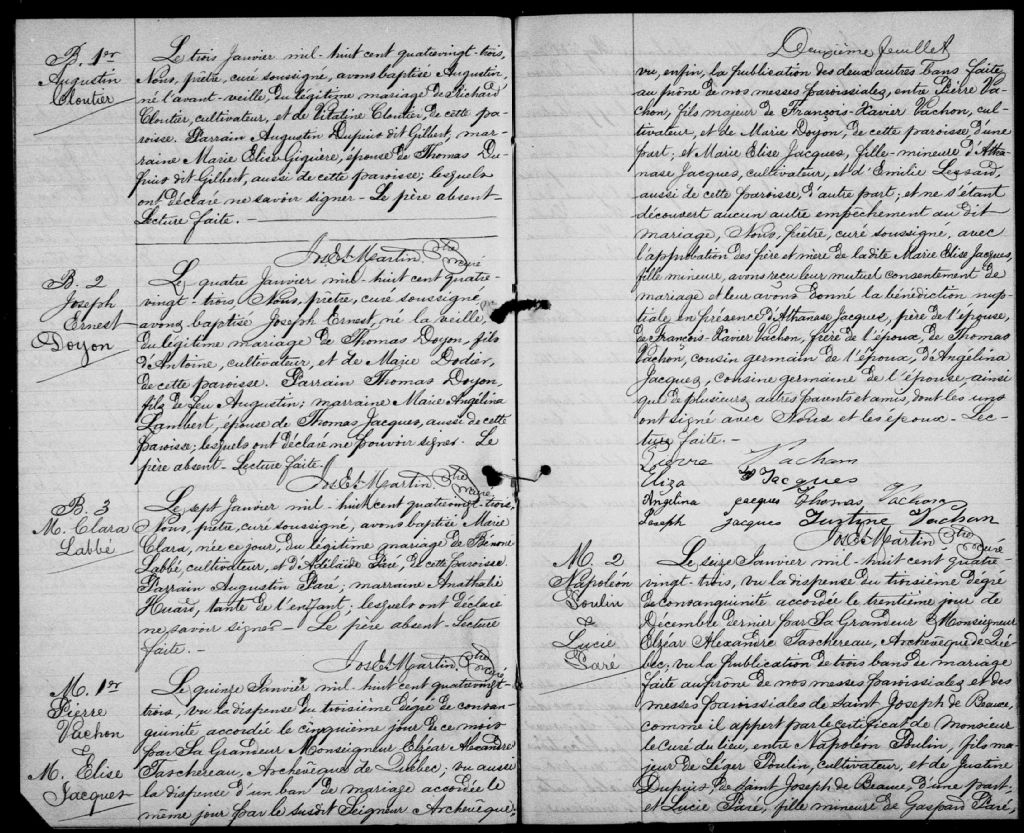 B. 1er
Augustin
Cloutier
Le trois Janvier mil-huit cent quatrevingt-trois,
Nous, prêtre, curé soussigné, avons baptisé Augustin,
né l'avant-veille, du légitime mariage de Richard
Cloutier, cultivateur, et de Vitaline Cloutier, de cette pa-
roisse. Parrain Augustin Dupuis dit Gilbert, mar-
raine Marie Elise Giguère, épouse de Thomas Du-
puis dit Gilbert, aussi de cette paroisse; lesquels
ont déclaré ne savoir signer. Le père absent-
Lecture faite. —
Jos. Et. Martin Ptre
Curé
B. 2
Joseph
Ernest
Doyon
Le quatre Janvier mil-huit cent quatre-
vingt-trois Nous, prêtre, curé soussigné,
avons baptisé Joseph Ernest, né la veille,
du légitime mariage de Thomas Doyon, fils
d'Antoine, cultivateur, et de Marie Dodier,
de cette paroisse. Parrain Thomas Doyon,
fils de feu Augustin; marraine Marie Angélina
Lambert, épouse de Thomas Jacques, aussi de cette
paroisse; lesquels ont déclaré ne pouvoir signer. Le
père absent- Lecture faite.
Jos. Et. Martin Ptre
Curé
B. 3
M. Clara
Labbé
Le sept Janvier mil-huit cent quatrevingt-trois,
Nous, prêtre, curé soussigné, avons baptisé Marie
Clara, née ce jour, du légitime mariage de Bénoni
Labbé, cultivateur, et d'Adélaïde Paré, de cette paroisse
Parrain Augustin Paré; marraine Anathalie
Huard, tante de l'enfant; lesquels ont déclaré
ne savoir signer - Le père absent. Lecture
faite. —
Jos. Et. Martin, Ptre
Curé
M. 1er
Pierre
Vachon
&
M. Elise
Jacques
Le quinze Janvier mil-huit cent quatrevingt-
trois, vu la dispense du troisième dégré de consan-
guinité accordée le cinquième jour de ce mois
par Sa Grandeur Monseigneur Elzéar Alexandre
Taschereau, Archevêque de Québec; vu aussi
la dispense d'un ban de mariage accordée le
même jour par le susdit Seigneur Archevêque;
Deuxième feuillet
vu, enfin, la publication des deux autres bans faite
au prône de nos messes paroissiales, entre Pierre Va-
chon, fils majeur de François-Xavier Vachon, cul-
tivateur, et de Marie Doyon, de cette paroisse d'une
part; et Marie Elise Jacques, fille-mineure d'Atha-
nase Jacques, cultivateur, et d'Emilie Lessard,
aussi de cette paroisse, d'autre part; et ne s'étant
découvert aucun autre empêchement au dit
mariage, Nous, prêtre, curé soussigné, avec
l'approbation des père et mère de la dite Marie Elise Jacques,
fille mineure, avons reçu leur mutuel consentement de
mariage et leur avons donné la bénédiction nup-
tiale en présence d'Athanase Jacques, père de l'épouse,
de François-Xavier Vachon, frère de l'époux, de Thomas
Vachon, cousin germain de l'époux, d'Angélina
Jacques, cousine germaine de l'épouse ainsi
que de plusieurs autres parents et amis, dont les uns
ont signé avec Nous et les époux - Lec-
ture faite. —
Pierre Vachon
Eliza Jacques
Angelina jacques Thomas Vachon
Joseph jacques Vachon
Jos. Et. Martin Ptre
Curé
M. 2
Napoléon
Poulin
&
Lucie
Paré
Le seize Janvier mil-huit cent quatre-
vingt-trois, vu la dispense du troisième dégré
de consanguinité accordée le trentième jour de
Décembre dernier par Sa Grandeur Monseigneur
Elzéar Alexandre Taschereau, Archevêque de Qué-
bec; vu la publication de trois bans de mariage
faite au prône de nos messes paroissiales et des
messes paroissiales de Saint Joseph de Beauce,
comme il appert par le certificat de monsieur
le Curé du lieu, entre Napoléon Poulin, fils ma-
jeur de Léger Poulin, cultivateur, et de Justine
Dupuis de Saint Joseph de Beauce, d'une part-
et Lucie Paré, fille mineure de Gaspard Paré,